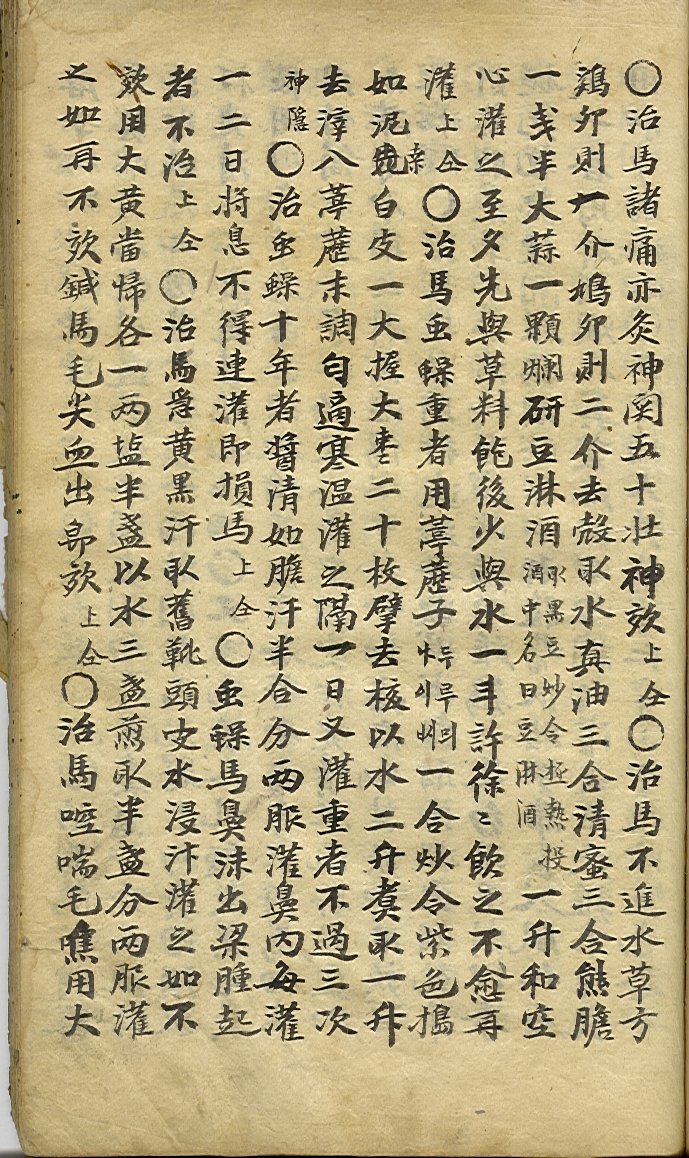 〇治馬諸痛亦灸神闕五十壯神效上仝〇治馬不進水草方
鷄夘則一介鳩夘則二介去殼取水真油三合清蜜三合熊膽
一戔半大蒜一顆爛研豆淋酒取黒豆炒令極熱投酒中名曰豆淋酒一升和空
心灌之至夕先與草料飽後少與水一斗許徐〻飮之不愈再
灌上仝〇治馬虫顙重者用葶藶子두루믜나시삐一合炒令紫色搗
如泥桑白皮一大握大棗二十枚擘去核以水二升煑取一升
去滓入葶藶末調匀適寒温灌之隔一日又灌重者不過三次
神隠〇治虫顙十年者醬清如膽汁半合分兩服灌鼻內每灌
一二日將息不得連灌即損馬上仝〇虫顙馬鼻沫出梁腫起
者不治上仝〇治馬尿黄黒汗取舊靴頭皮水浸汁灌之如不
效用大黄當帰各一两塩半盞以水三盞煎取半盞分兩服灌
之如再不效鍼馬毛尖血出即效上仝〇治馬啌喘毛焦用大